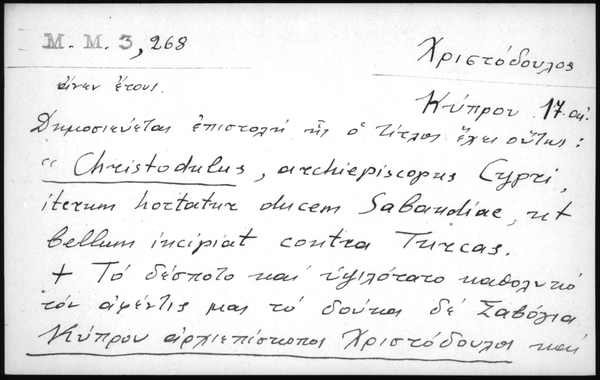 M. M. 3, 268
Χριστόδουλος
ἄνευ ἔτους.
Κύπρου 17 αἰ.
Δημοσιεύεται ἐπιστολή ἧς ὁ τίτλος ἔχει οὕτως :
“ Christodulus, archiepiscopus Cypri,
iterum hortatur ducem Sabaudiae, ut
bellum incipiat contra Turcas.
+ Τό δέσποτο καί ὑψιλότατο καθολικό
τόν ἀφέντις μας τό δούκα δέ Σαβόγια
Κύπρου ἀρχιεπίσκοπος Χριστόδουλος καί